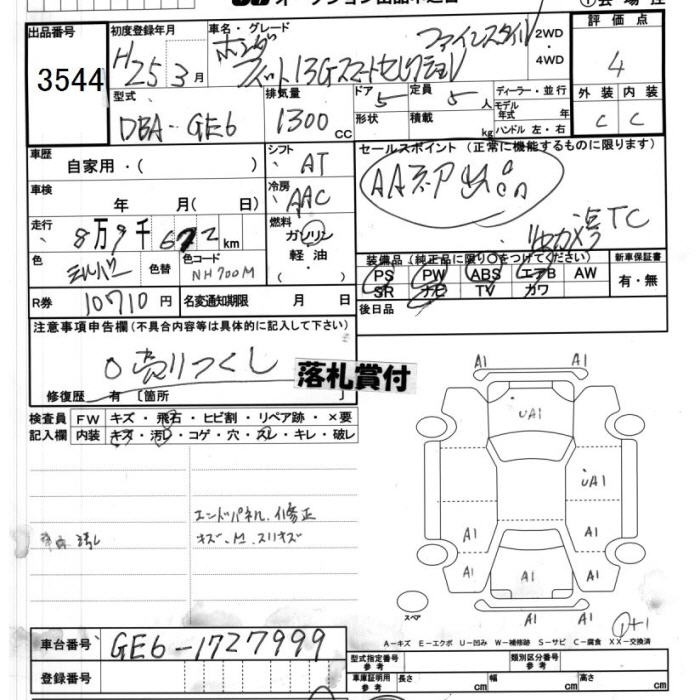 出品番号 初度登録年月 車名・グレード 評価点
3544 H25 3月 ホンダ ファインスタイル 2WD・4WD 4
フィット13Gスマートセレクション
型式 排気量 ドア 5 定員 5人 ディーラー・並行 外装 内装
DBA-GE6 1300cc 形状 積載 kg モデル年式 年 C C
ハンドル 左・右
車歴 シフト セールスポイント (正常に機能するものに限ります)
自家用・( ) AT
車検 冷房
年 月( 日) AAC
走行 燃料 TC
8万9千672km ガソリン
軽油・
色 色替 色コード 装備品(純正品に限り○をつけてください) 新車保証書
シルバー NH700M PS PW ABS エアB AW 有・無
SR ナビ TV カワ
R券 10710円 名変通知期限 月 日 後日品
注意事項申告欄(不具合内容等は具体的に記入して下さい)
売りつくし
落札賞付
修復歴 有 [箇所 ]
検査員 FW キズ・飛石・ヒビ割・リペア跡・×要
記入欄 内装 キズ・汚れ・コゲ・穴・スレ・キレ・破レ
A1 A1
UA1
UA1
A1 A1
A1 A1 A1
A1 A1
エンドパネル
キズ、M、スリキズ
スペア
A－キズ E－エクボ U－凹み W－補修跡 S－サビ C－腐食 XX－交換済
車台番号 GE6-1727999
型式指定番号 参考 類別区分番号 参考
登録番号 車庫証明用 参考 長さ cm 幅 cm 高さ cm